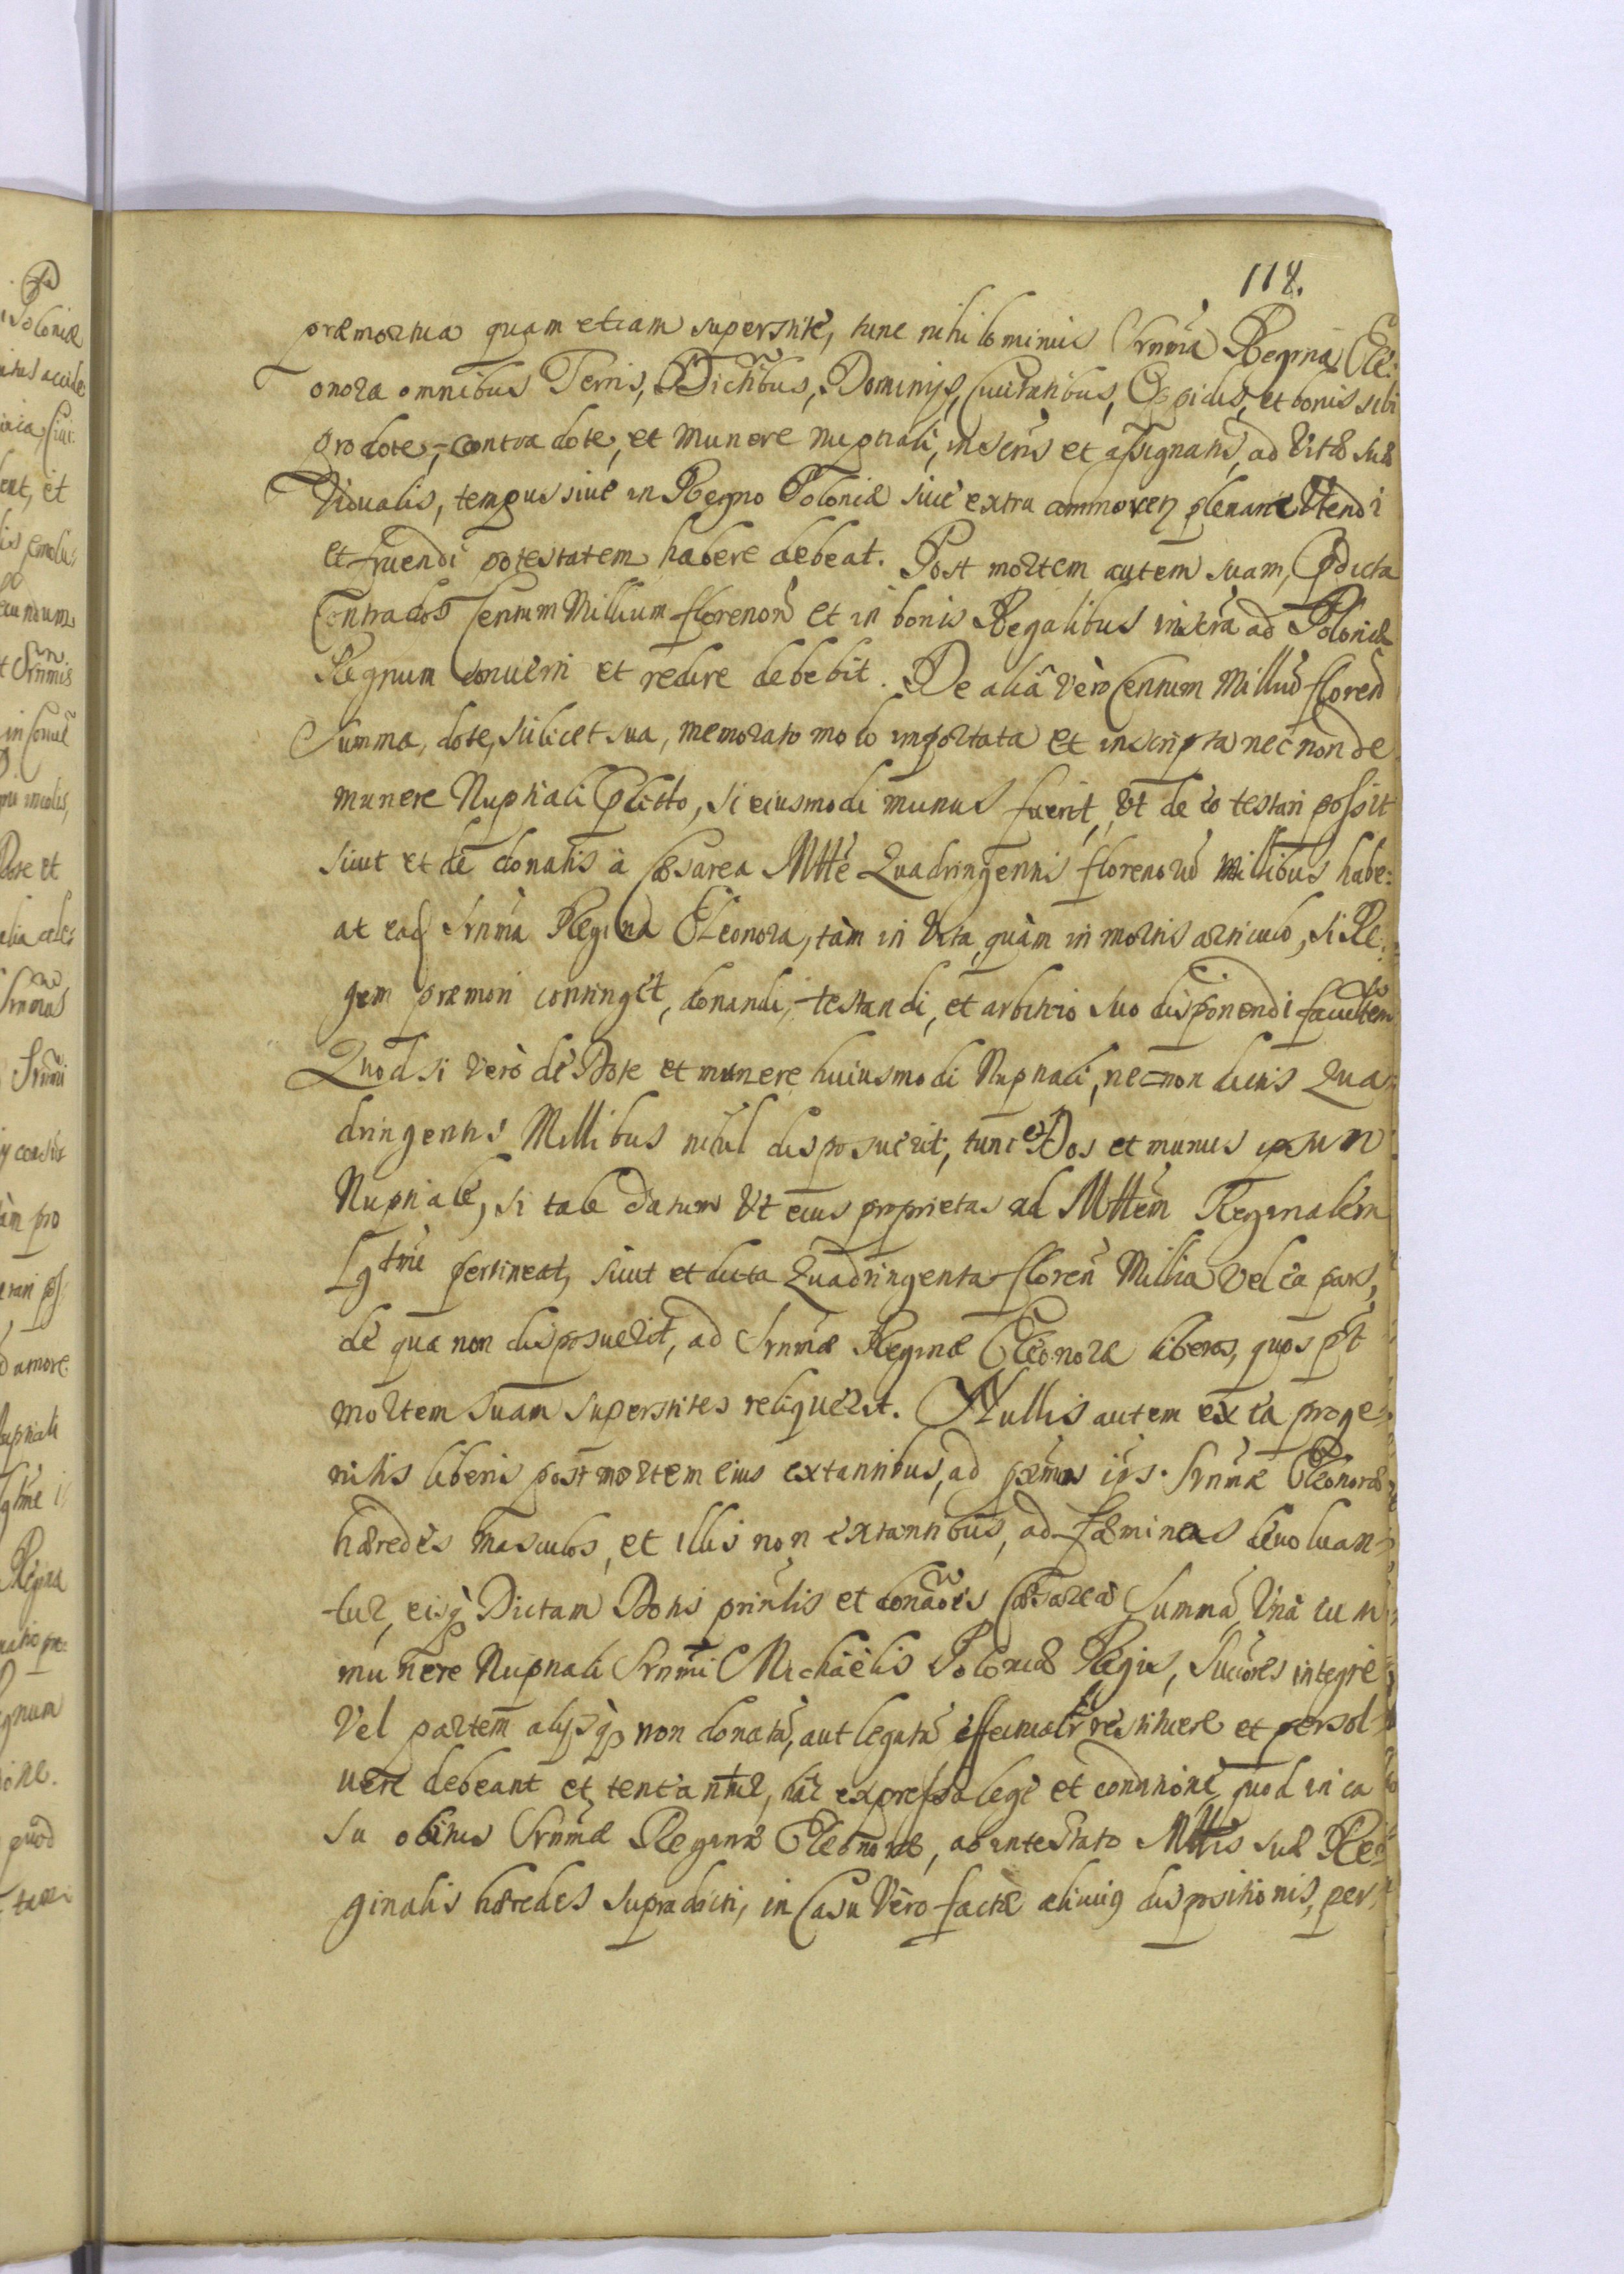 118.
præmortua quam etiam superstite, tunc nihilominus Srnma Regina Ele:
onora omnibus Terris, Dictibus, Dominijs, Ciuitatibus, Oppidis, et bonis sibi
pro dote, contra dote, et munere nuptiali, inscris et assignatis, ad Vitæ suæ
Vidualis, tempus siue in Regno Poloniæ siue extra commoret plenarie Vtendi
et fruendi potestatem habere debeat. Post mortem autem suam, Pdicta
Contrados Centum Millium florenorũ et in bonis Regalibus inscra ad Poloniæ
Regnum conuerti et redire debebit. De aliâ Verò Centum Milliũ florenũ
Summa, dote, scilicet sua, memorato modo importata et inscripta nec non de
munere Nuptiali Pdicto, si eiusmodi munus fuerit, Vt de eo testari possit
sicut et de donatis à Cæsarea Mtte Quadringentis florenorũ Millibus habe:
at ead Srnma Regina Eleonora, tàm in Vita, quàm in mortis articulo, si Re:
gem præmori continget, donandi, testandi, et arbitrio suo disponendi facultem
Quod si Verò de Dote et munere huiusmodi Nuptiali, nec non dictis Qua-
dringentis Millibus nihil disposuerit, tunc et Dos et munus ipsum
Nuptiale, si tale datum Vt eius proprietas ad Mttem Reginalem
Lgtme pertineat, sicut et dicta Quadringenta florenũ Millia Vel ea pars,
de qua non disposuerit, ad Srnmæ Reginæ Eleonoræ liberos, quos pt
mortem suam superstites reliquerit. Nullis autem ex ea proge-
nitis liberis post mortem eius extantibus, ad pximos ips. Srnmæ Eleonoræ
hæredes masculos, et illis non extantibus, ad fæminas deuoluan-
tur, eisq Dictam Dotis prinlis et donaois Cæsareæ Summã, Vnà cum
munere Nuptiali Srnmi Michaëlis Poloniæ Regis, Succores integrè
Vel partem non donatã, aut legatã effectualr restituere et persol-
uere debeant et teneantur, hac expressa lege et conditione, quod in ca
su obitus Srnmæ Reginæ Eleonoræ, ab intestato Mttis suæ Re-
ginalis hæredes supradicti, in Casu Vero factæ alicuig dispositionis, per-